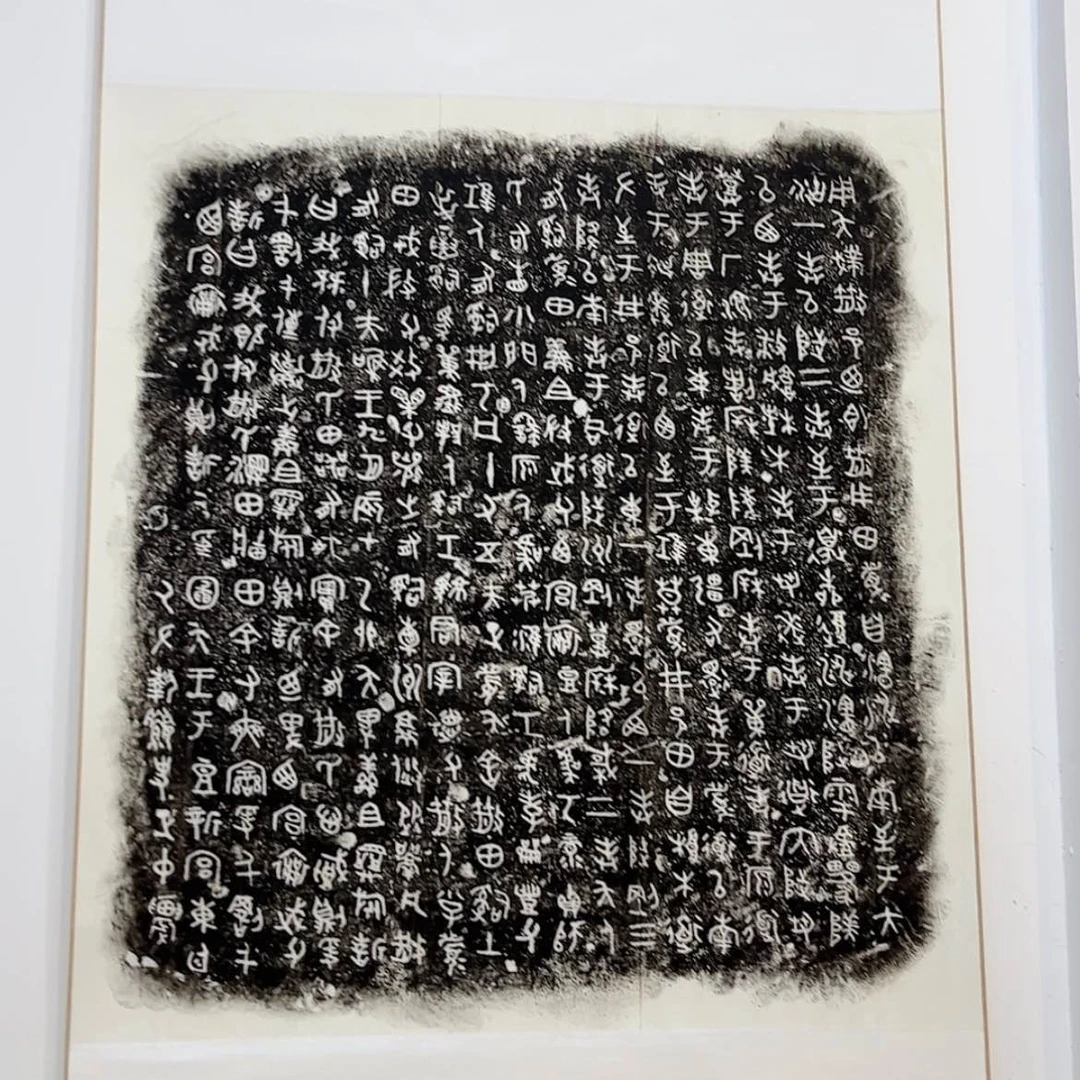 用夨散邑乃即散用田眉自瀗涉以南至于大
沽一封以陟二封至于邊柳復涉瀗陟雩
以西封于城楮木封于芻逨封于芻道内陟芻
登于厂湶封陵剛封于單道封于原道
封于周道以東封于東疆右還封于眉道以南
封于逨道以西至于莫眉井邑田自木道
左至于井邑封道以東一封還以西一封陟剛三
封降以南封于同道陟州剛登降棫二封夨人
有司眉田鮮且微武父西宮襄豆人虞丂彔貞師
氏右眚小門人繇原人虞艿淮司工虎孝豐父
人有司刑丂凡十又五夫正眉夨舍散田司土
屰寅司馬單人司工君宰德父散人小子眉
田戎微父效父襄之有司橐州焂從凡散
有司十夫唯王九月辰才乙卯夨卑鮮且旅誓
曰我既付散氏田器有爽實余有散氏心賊則爰
千罰千傳棄之鮮且旅則誓廼卑西宮襄武父
誓曰我既付散氏濕田牆田余有爽變爰千罰千
西宮襄武父則誓厥受圖夨王于豆新宮東廷
厥左執史正中農